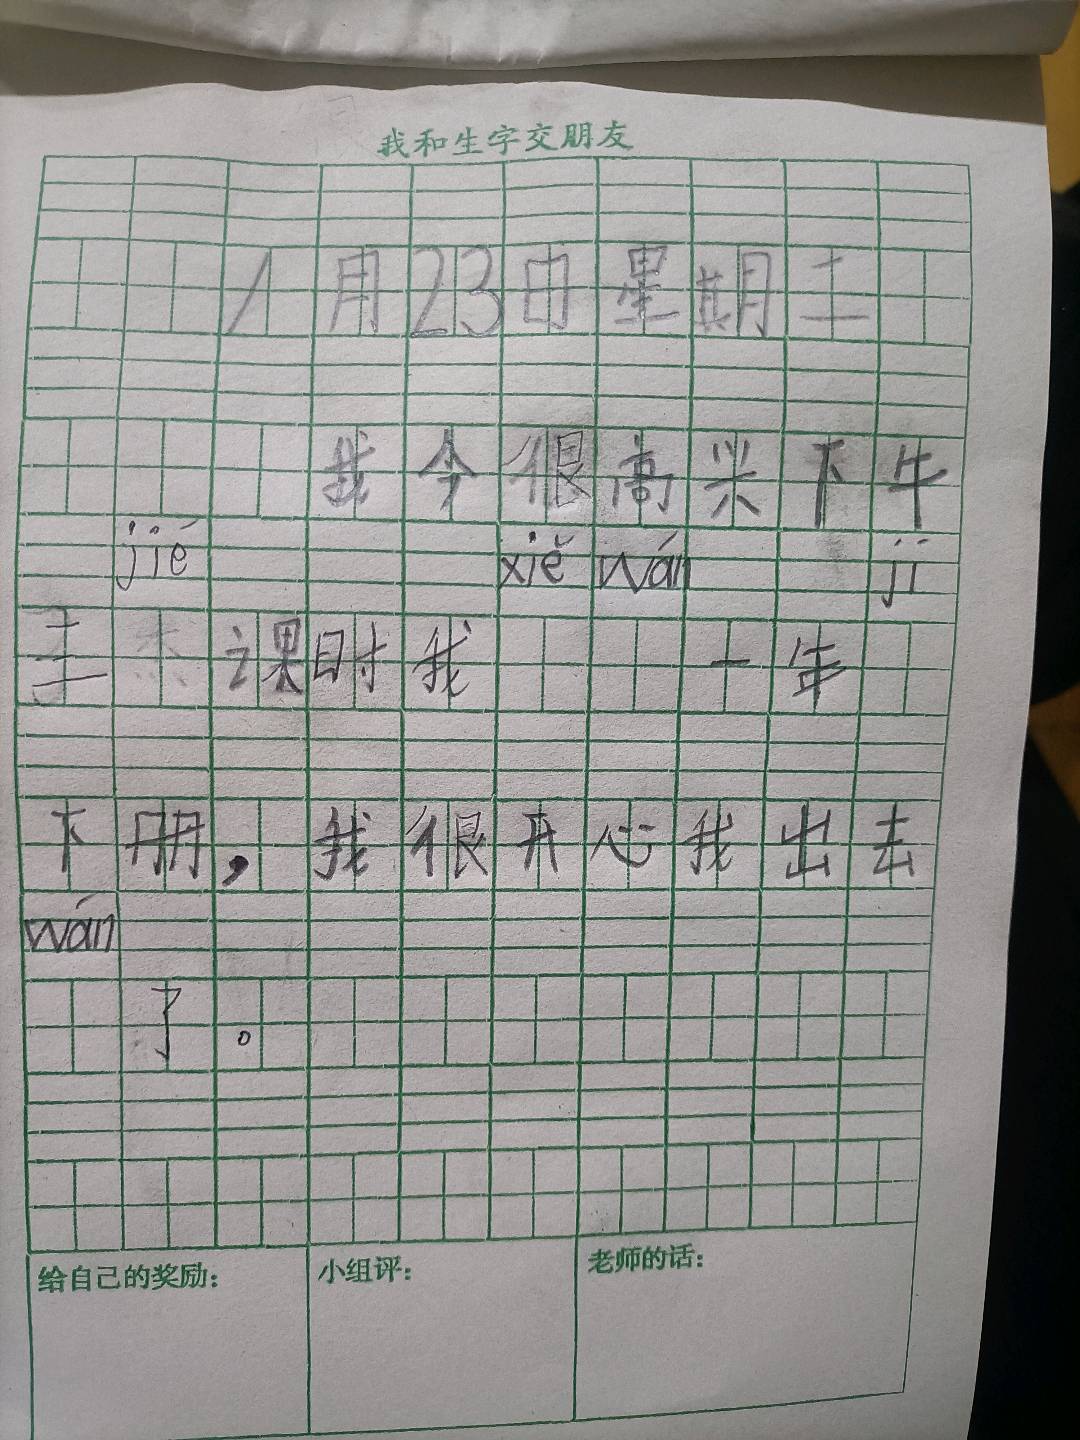 我和生字交朋友
1月23日星期二
我今很高兴下午
jié xiě wán jí
王杰课时我 一年
下册，我很开心我出去
wán
了。
给自己的奖励： 小组评： 老师的话：